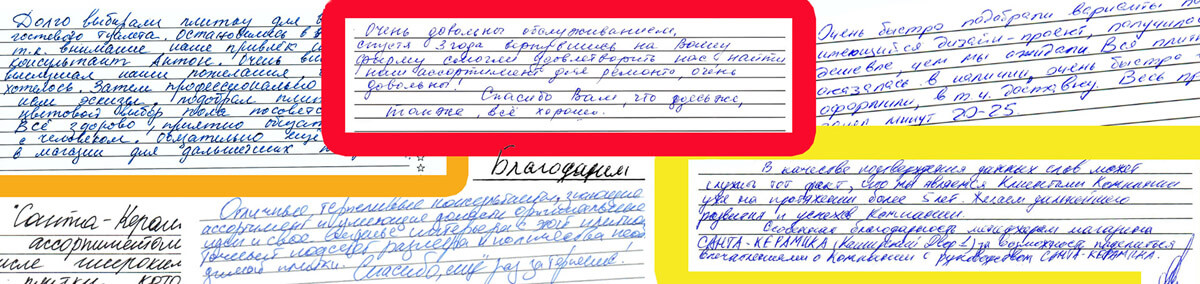 Долго выбирали плитку для в
гостевого туалета. Остановились в
т.к. внимание наше привлек
консультант Антон. Очень
выслушал наши пожелания,
хотелось. Затем профессионально
нам эскизы, подобрал
цветовой выбор пола посовет
Всё здорово, приятно
с человеком. Обязательно еще
в магазин для дальнейших
Очень довольны обслуживанием,
спустя 3 года вернувшись на Вашу
фирму смогли удовлетворить нас и найти
нам ассортимент для ремонта, очень
довольны!
Спасибо Вам, что
также, всё хорошо.
Очень быстро подобрали варианты по
имеющийся дизайн-проект, получилось
дешевле, чем мы ожидали. Вся
оказалась в наличии, очень быстро
оформили, в т.ч. доставку. Весь
занял минут 20-25
Благодарим
"Санта-Керам
ассортиментом
числе широким
плитки, КОТО
Отличные, терпеливые консультации, знающие
ассортимент и умеющие донести оригинальные
идеи и своё интерьера и этой
точный подсчёт размера и количества
плитки. Спасибо, ещё раз за терпение!
В качестве подтверждения данных слов может
служить тот факт, что мы являемся Клиентами Компании
уже на протяжении более 5 лет. Желаем дальнейшего
развития и успехов Компании.
Особенная благодарность менеджерам магазина
САНТА-КЕРАМИКА (Каширский двор 1) за возможность поделиться
впечатлениями о Компании с руководством САНТА-КЕРАМИКА.